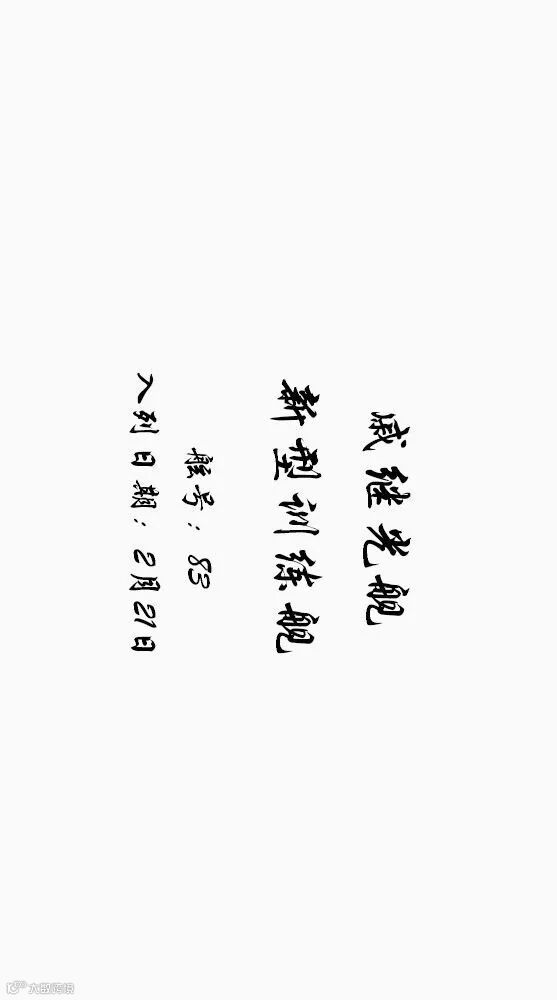 戚继光舰
新型训练舰
舷号：83
入列日期：2月21日
大数跨境